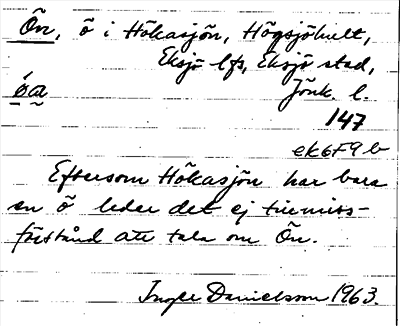 Ön, ö i Hökasjön, Högsjöhult,
Eksjö lfs, Eksjö stad,
öa Jönk. l.
147
ek6F9b
Eftersom Hökasjön har bara
en ö leder det ej till miss-
förstånd att tala om Ön.
Danielsson 1963.